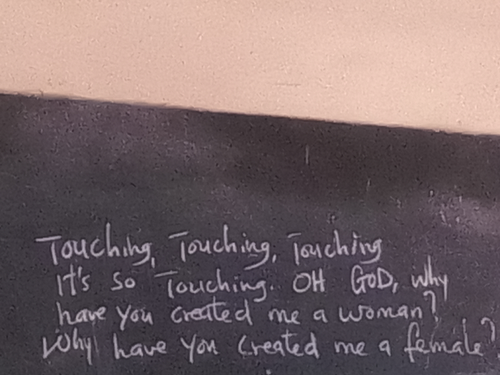 Touching, Touching, Touching
It's so Touching. OH GOD, why
have you created me a woman?
Why have you created me a female?